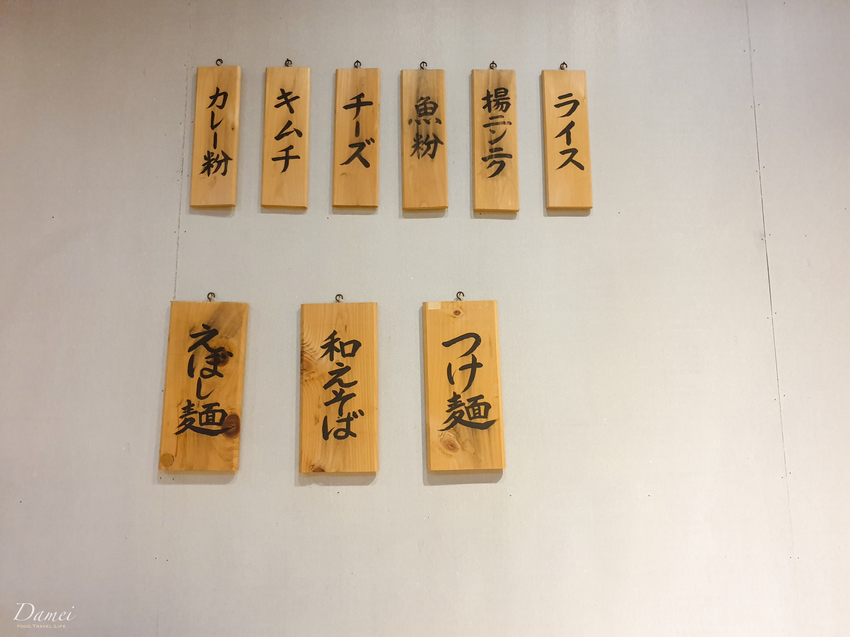 カレー粉
キムチ
チーズ
魚粉
揚ニンニク
ライス
えぼし麺
和えそば
つけ麺
Damei
FOOD.TRAVEL.LIFE